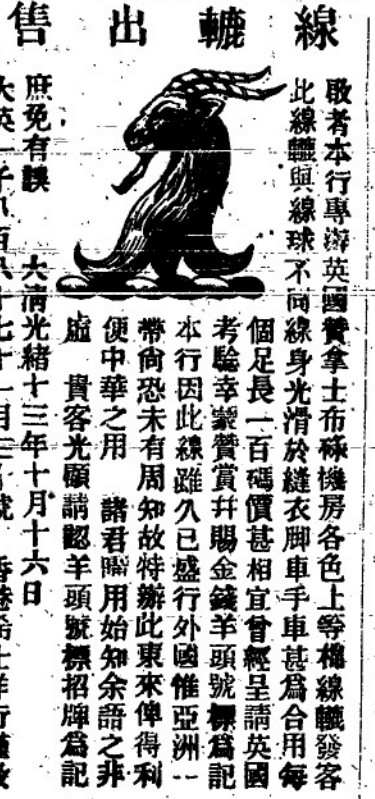 線轆出售
敬者本行專辦英國贊拿士布碌機房各色上等棉線轆發客
此線轆與線球不同線身光滑於縫衣脚車手車甚爲合用每
個足長一百碼價甚相宜曾經呈請英國
考驗幸蒙贊賞幷賜金錢羊頭號標爲記
本行因此線雖久已盛行外國惟亞洲一
帶尙恐未有周知故特辦此東來俾得利
便中華之用 諸君賜用始知余語之非
虛 貴客光顧請認羊頭號標招牌爲記
庶免有誤 大清光緒十三年十月十六日
大英一千八百八十七十一月三十號 香港 士洋行謹啟